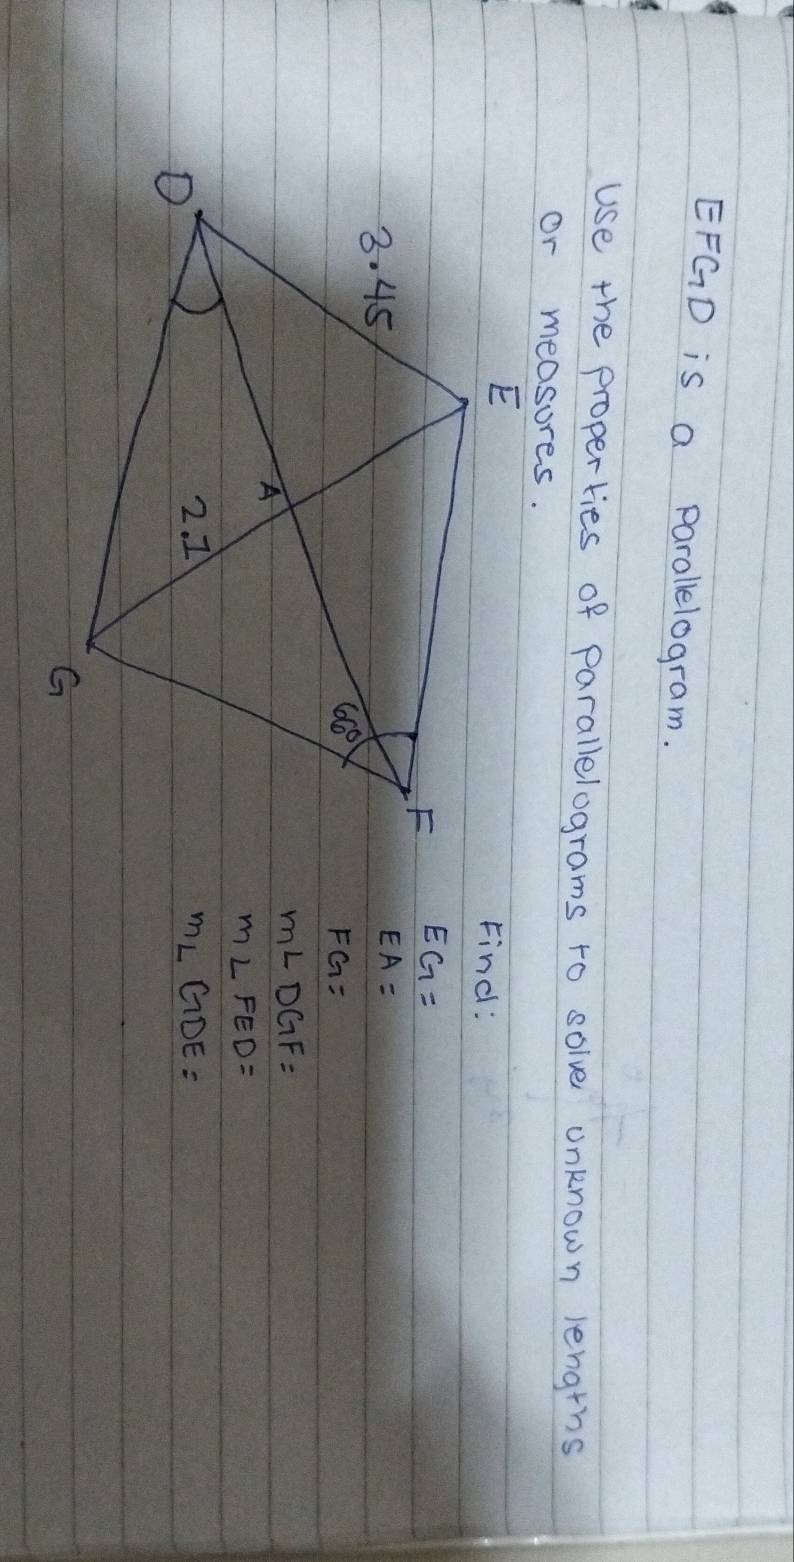 EFGD is a parallelogram.
Use the properties of parallelograms to solve unknown lengths
or measures.
E
F
D
G
A
3.45
2.1
66°
Find:
EG=
EA=
FG=
m∠DGF=
m∠FED=
m∠GDE=